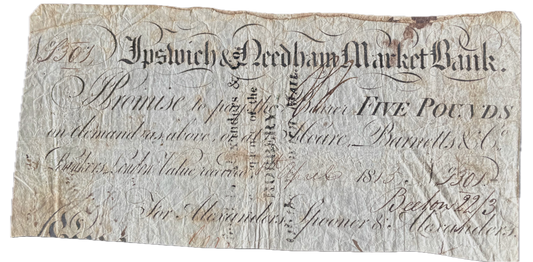 N 2301
Ipswich & Needham Market Bank.
Promise to pay the Bearer FIVE POUNDS
on demand as above or at Hoare, Barnetts & Co.
Bankers London Value received 1813 N 2301
Beeton 22/3
For Alexanders, Spooner & Alexanders.
ROBBERY